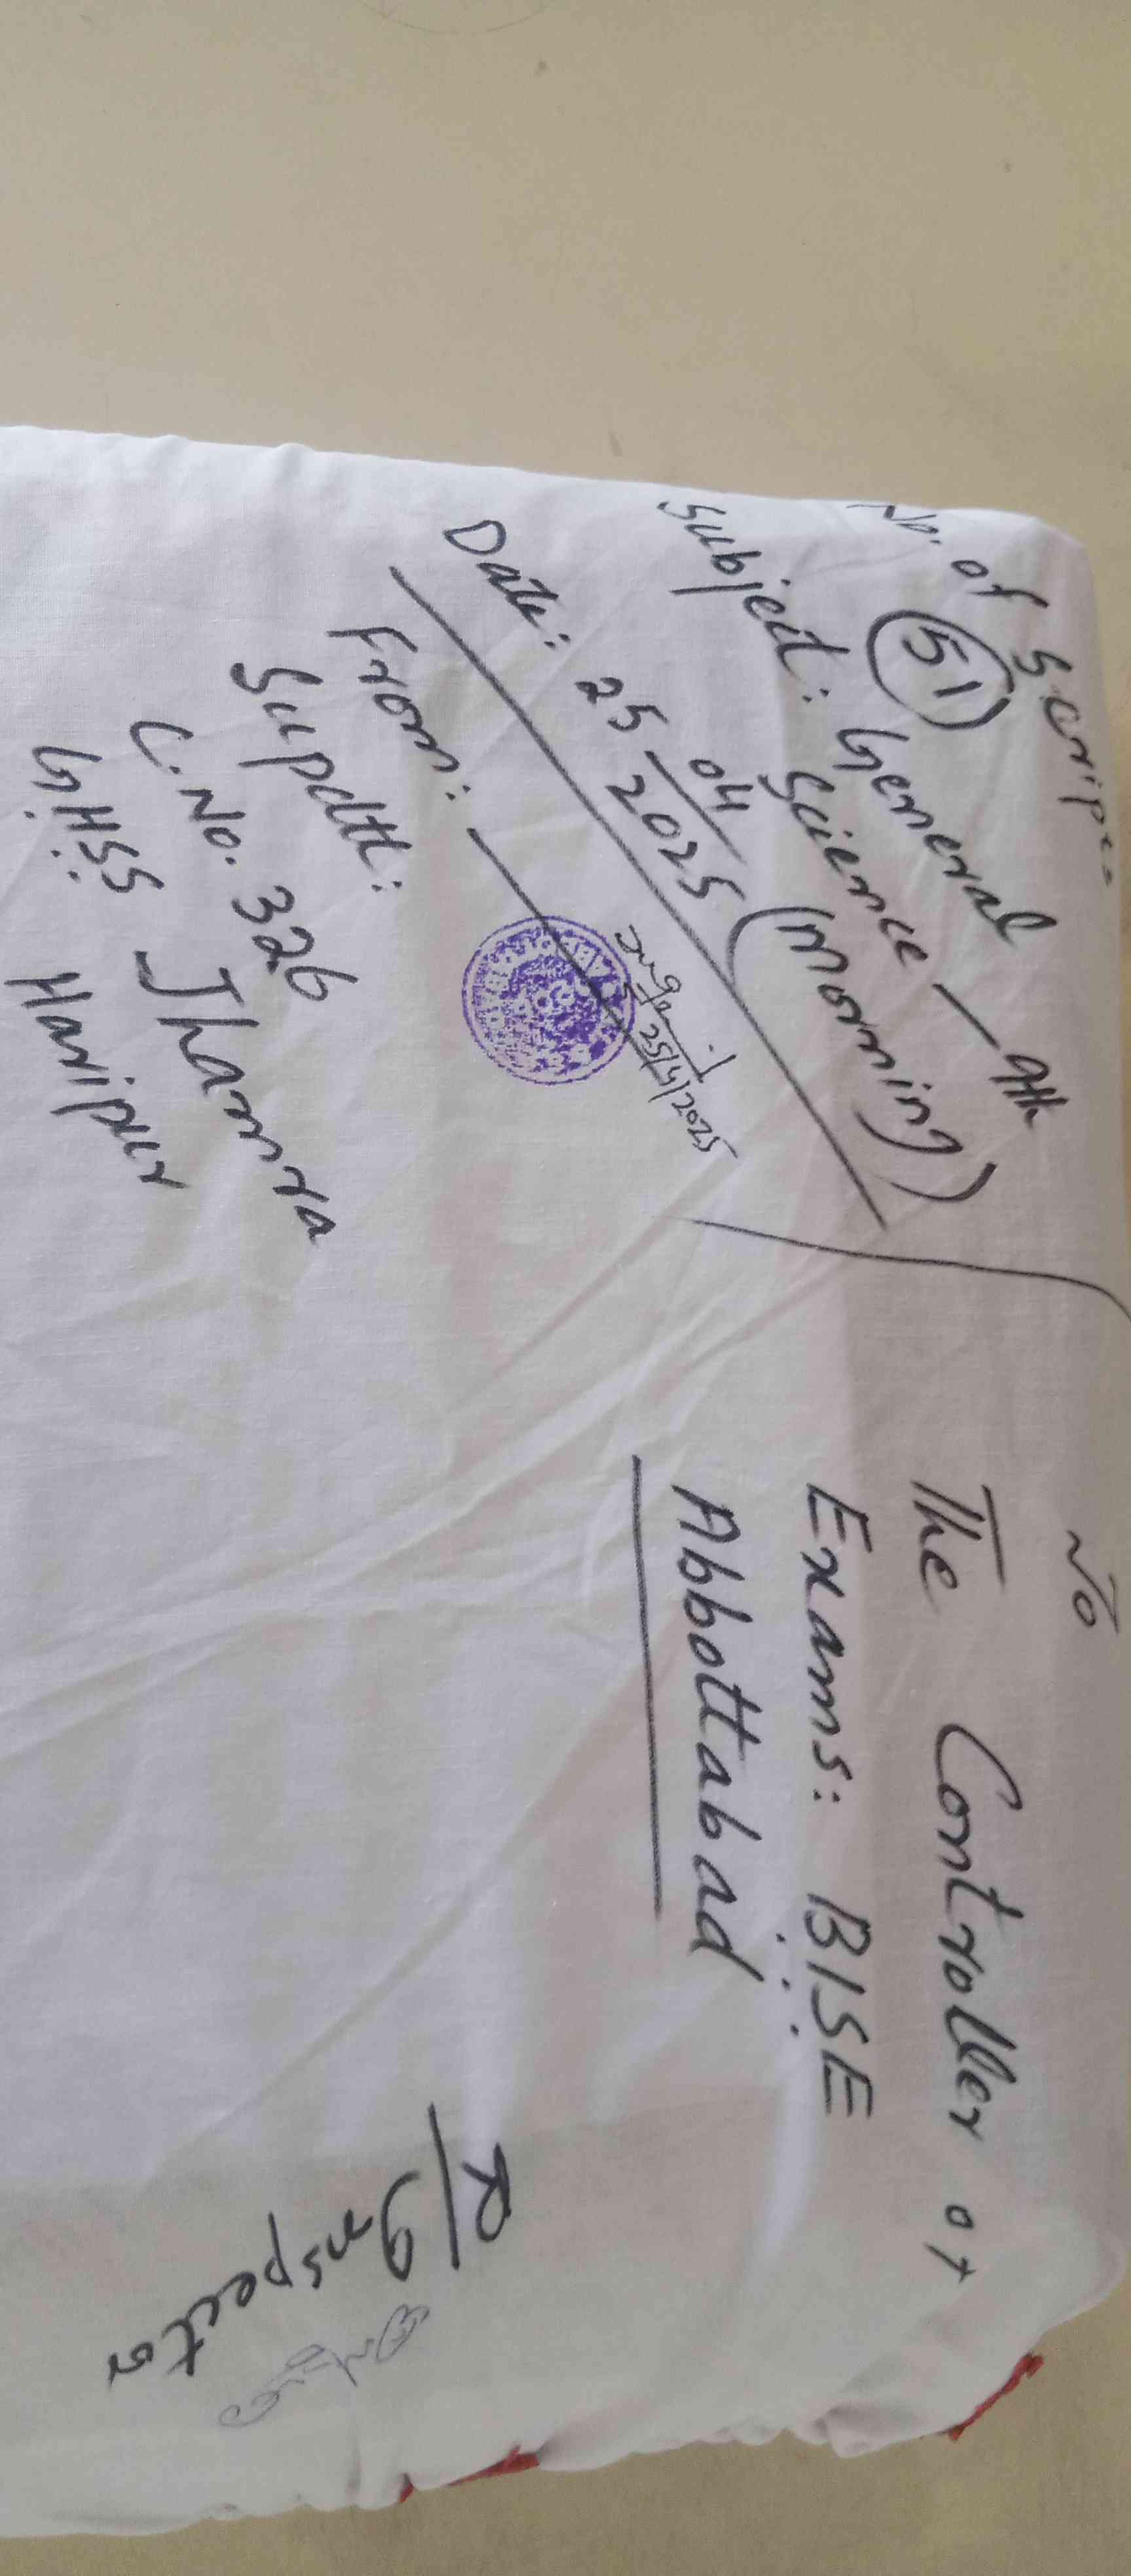 No. of Scripts
51
Subject: General
Science / 9th
(Morning)
Date: 25/04/2025
25/4/2025
From:
Supdtt:
C. No. 326
GHSS Jhamra
Haripur
To
The Controller of
Exams: BISE
Abbottabad
R/Inspector